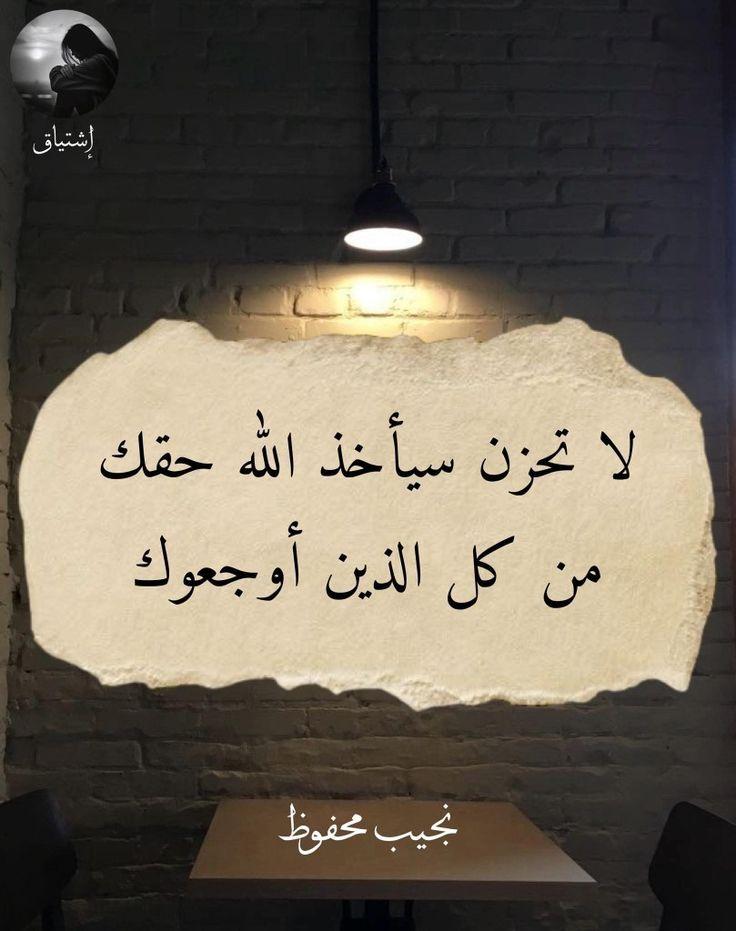 إشتياق
لا تحزن سيأخذ الله حقك
من كل الذين أوجعوك
نجيب محفوظ